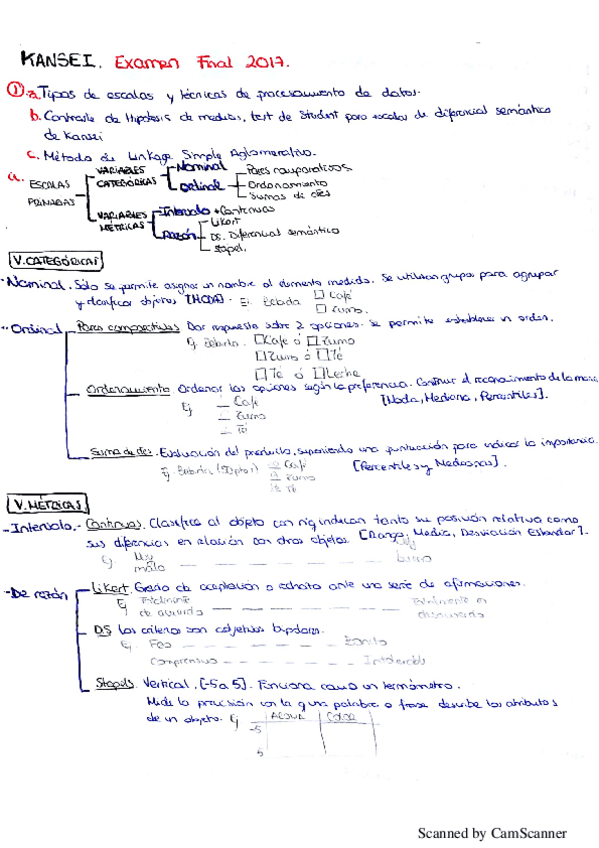 KANSEI. Examen Final 2017.
① a. Tipos de escalas y técnicas de procesamiento de datos.
b. Contraste de Hipótesis de medias, test de Student para escalas de diferencial semántico
de Kansei
c. Método de Linkage Simple Aglomerativo.
a. ESCALAS PRIMARIAS
VARIABLES CATEGÓRICAS
Nominal
Ordinal
Pares comparativos
Ordenamiento
Sumas de ctes
VARIABLES MÉTRICAS
Intervalo → Continuas
Razón
Likert
DS. Diferencial semántico
Stapel.
V. CATEGÓRICAS
- Nominal. Solo se permite asignar un nombre al elemento medido. Se utilizan grupos para agrupar
y clasificar objetos [MODA]. Ej. Bebida □ Café
□ Zumo.
- Ordinal
Pares comparativos Dar respuesta sobre 2 opciones. Se permite establecer un orden.
Ej. Bebida. □ Café ó □ Zumo
□ Zumo ó □ Té
□ Té ó □ Leche
Ordenamiento Ordenar las opciones según la preferencia. Continuar el reconocimiento de la marca
[Moda, Mediana, Percentiles].
Ej Café
Zumo
Té
Suma de ctes. Evaluación del producto, suponiendo una puntuación para indicar la importancia.
Ej. Bebida Café
[Percentiles y Medianas].
Zumo
Té
V. MÉTRICAS
- Intervalo.- Continuas. Clasifica al objeto con tanto su posición relativa como
sus diferencias en relación con otros objetos. [Rango, Media, Desviación Estándar].
Ej Muy malo bueno
- De razón
Likert. Grado de aceptación o rechazo ante una serie de afirmaciones.
Ej Totalmente de acuerdo Totalmente en desacuerdo
DS los criterios son adjetivos bipolares.
Ej. Feo Bonito
Comprensivo Intolerable
Stapels. Vertical. [-5 a 5]. Funciona como un termómetro.
Mide la precisión con la q una palabra o frase describe los atributos
de un objeto. Ej
-5
5
Scanned by CamScanner